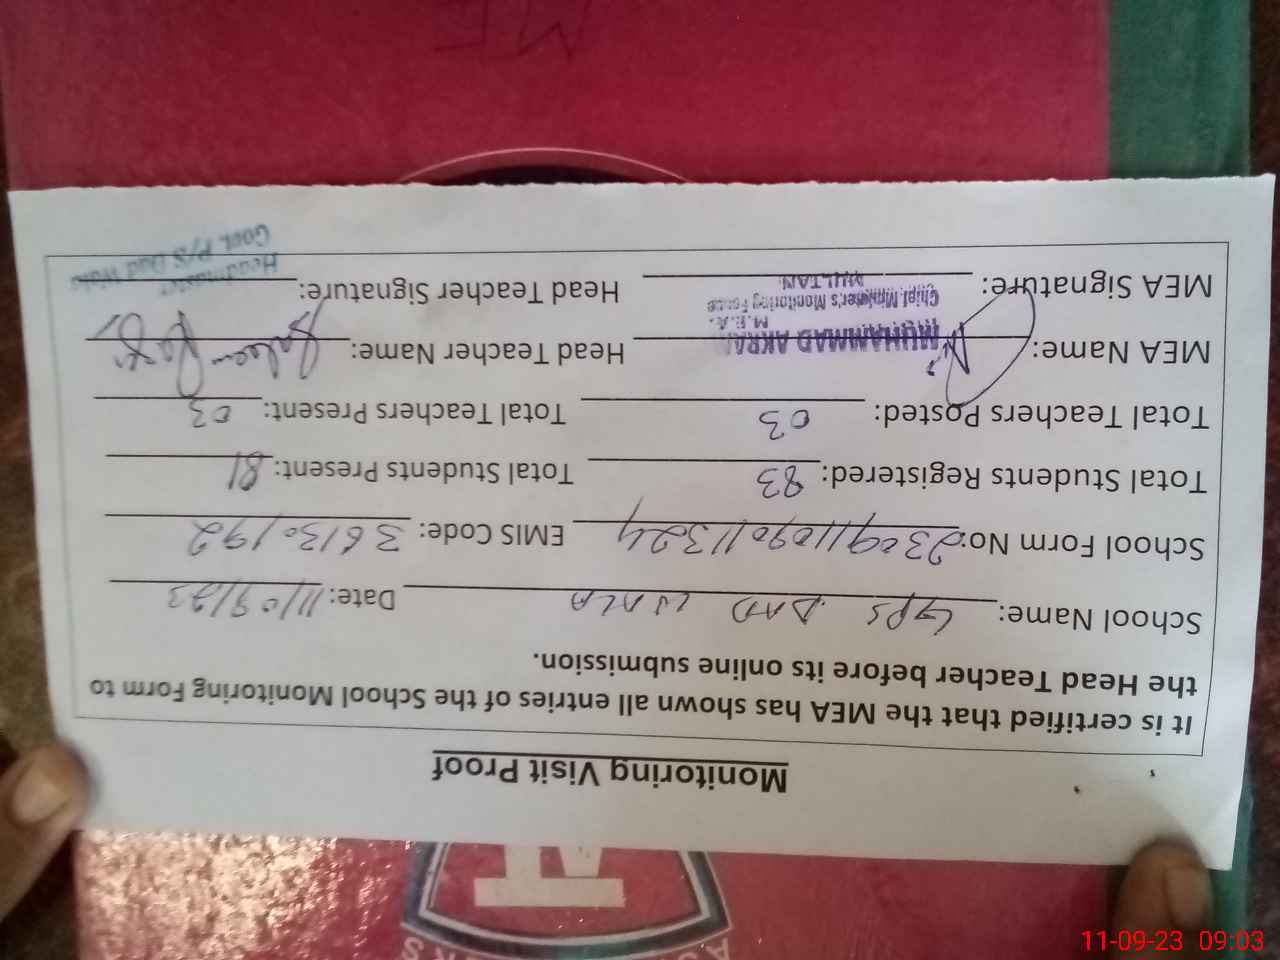 Monitoring Visit Proof
It is certified that the MEA has shown all entries of the School Monitoring Form to
the Head Teacher before its online submission.
School Name: GPS DAD WALA Date: 11/09/23
School Form No: 23091109011324 EMIS Code: 36130192
Total Students Registered: 83 Total Students Present: 81
Total Teachers Posted: 03 Total Teachers Present: 03
MEA Name: MUHAMMAD AKRAM Head Teacher Name:
M.E.A.
Chief Minister's Monitoring Force
MULTAN
MEA Signature: Head Teacher Signature:
Headmaster
Govt. P/S Dad Wala
11-09-23 09:03